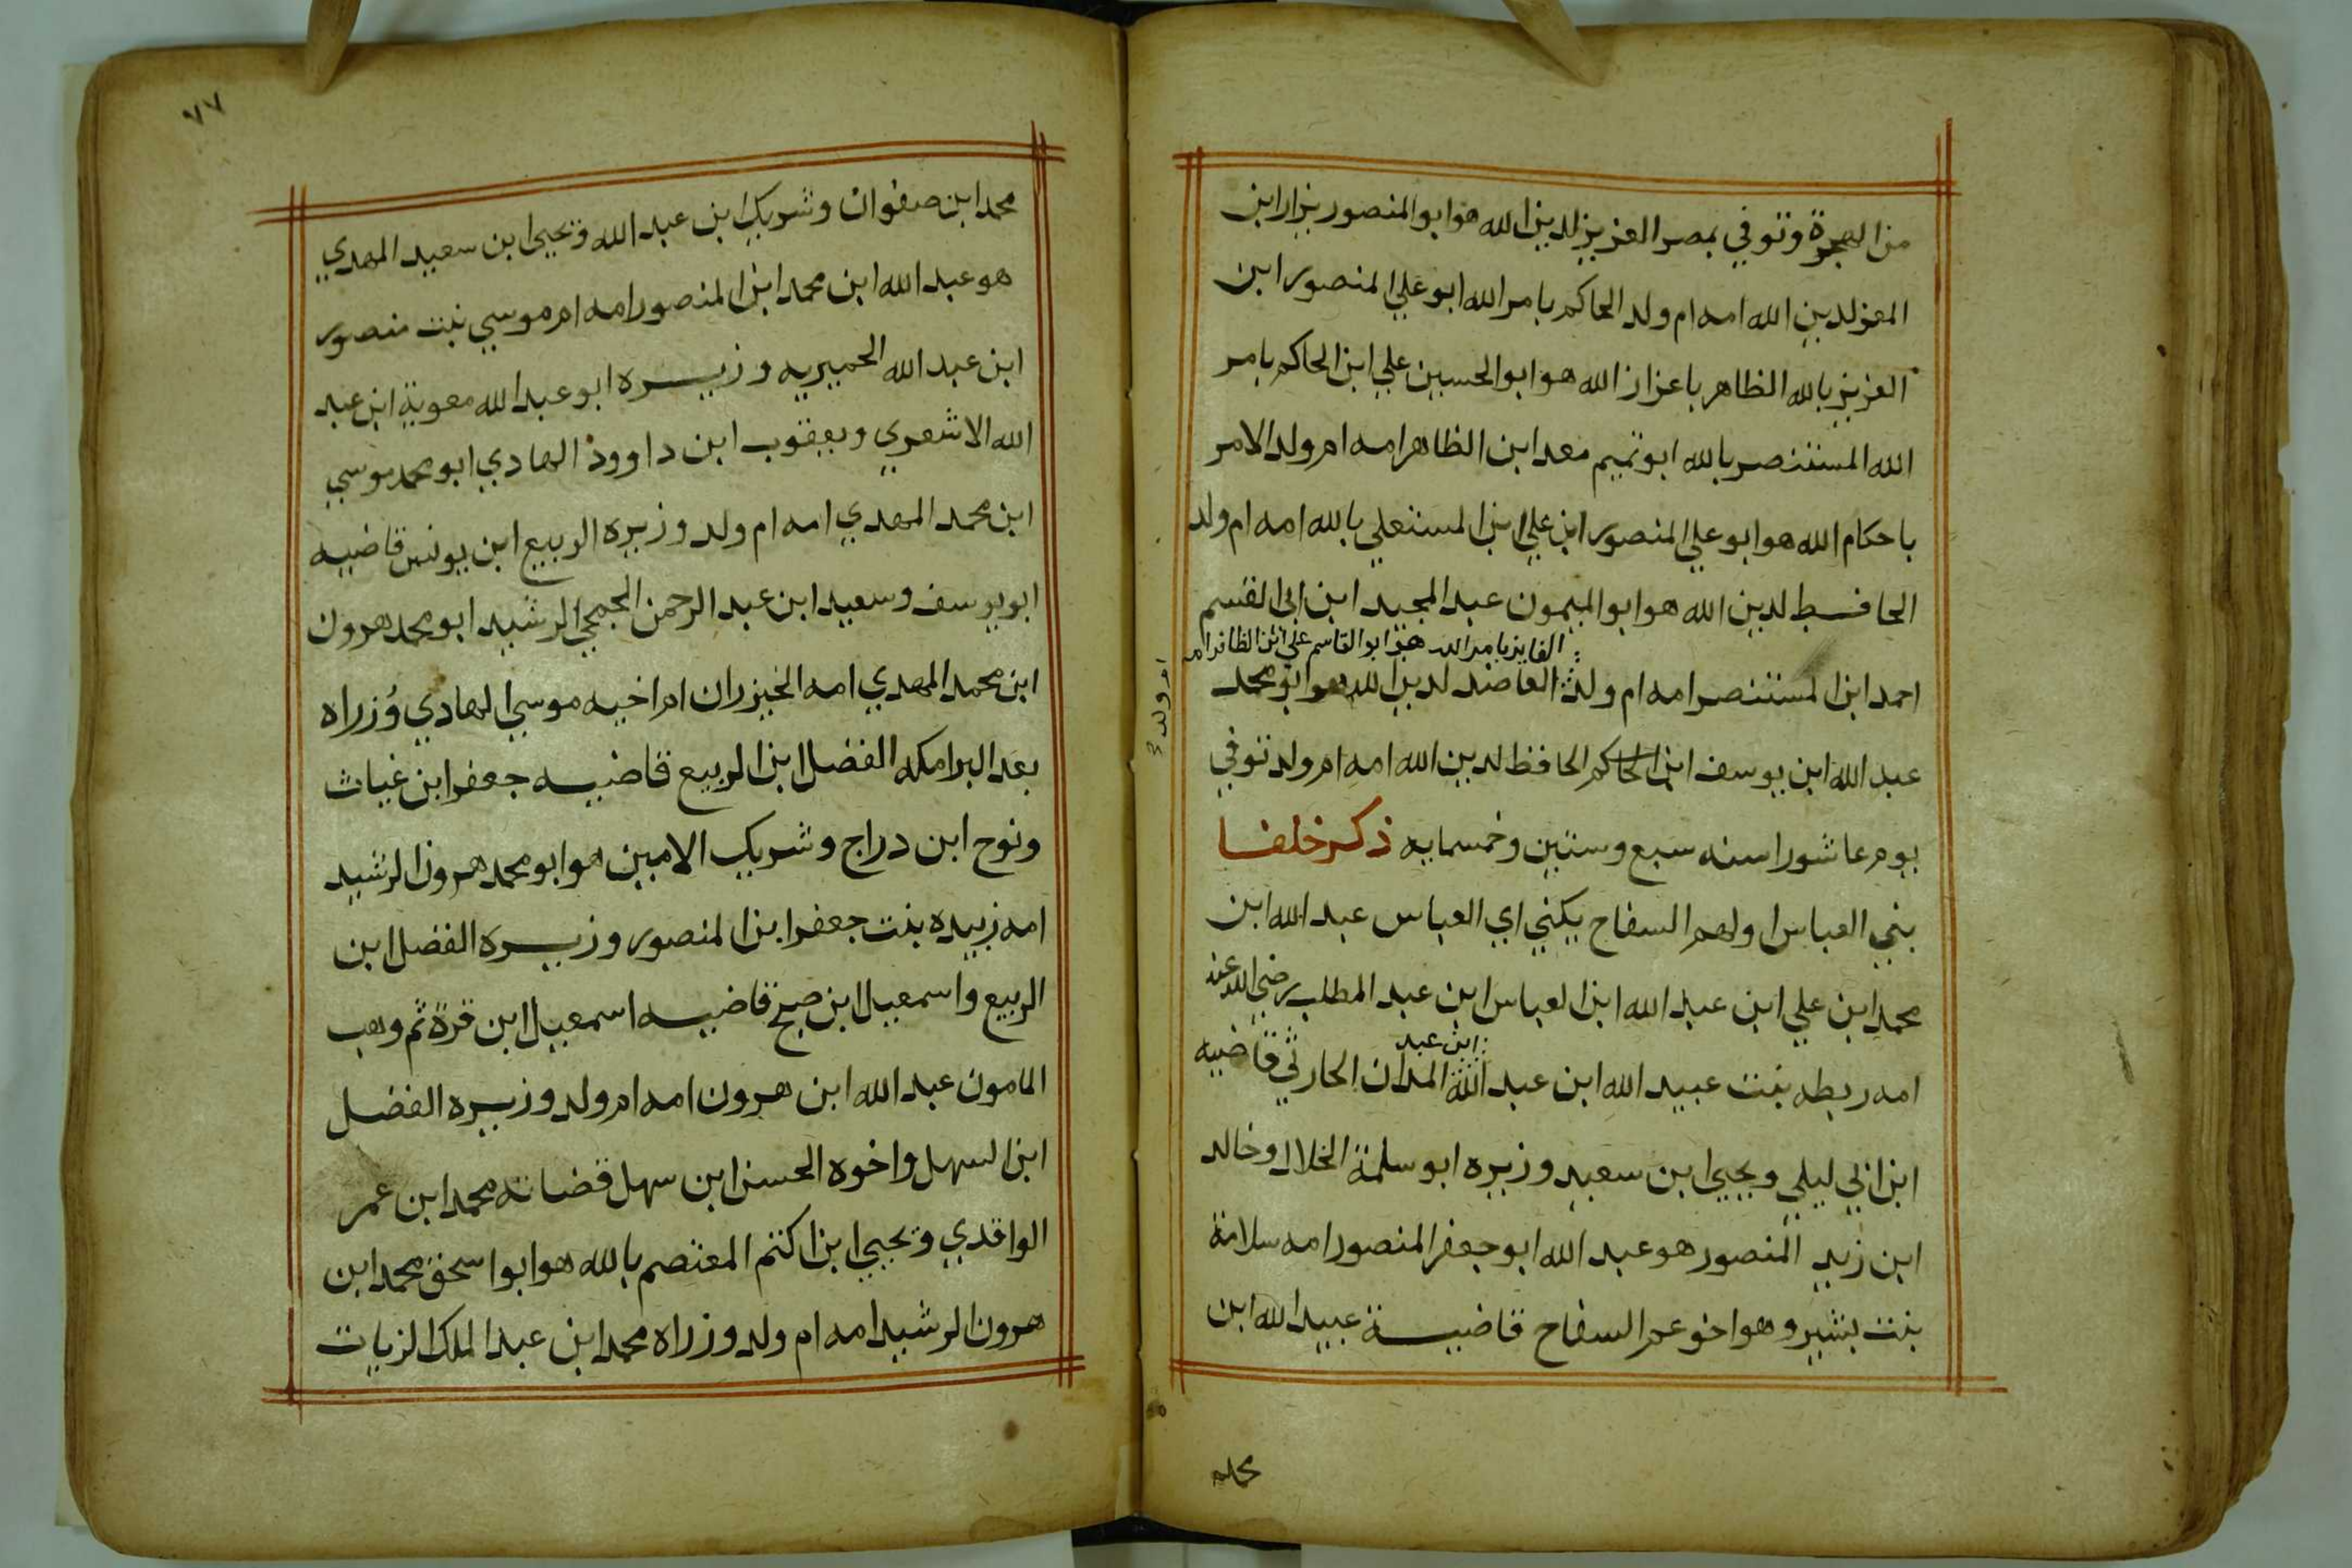 من الهجرة وتوفي بمصر العزيز لدين الله هو ابو المنصور نزار ابن
المعز لدين الله امه ام ولد الحاكم بامر الله ابو علي المنصور ابن
العزيز بالله الظاهر باعزاز الله هو ابو الحسين علي ابن الحاكم بامر
الله المستنصر بالله ابو تميم معد ابن الظاهر امه ام ولد الامر
باحكام الله هو ابو علي المنصور ابن علي ابن المستعلي بالله امه ام ولد
الحافظ لدين الله هو ابو الميمون عبد المجيد ابن ابي القسم
الفايز بامر الله هو ابو القاسم علي ابن الظافر امه
ام ولد
احمد ابن المستنصر امه ام ولد العاضد لدين الله هو ابو محمد
عبد الله ابن يوسف ابن الحاكم الحافظ لدين الله امه ام ولد توفي
يوم عاشورا سنه سبع وستين وخمسمايه ذكر خلفا
بني العباس اولهم السفاح يكني ابي العباس عبد الله ابن
محمد ابن علي ابن عبد الله ابن العباس ابن عبد المطلب رضي الله عنه
ابن عبد
امه ريطه بنت عبيد الله ابن عبد الله المدان الحارثي قاضيه
ابن ابي ليلي ويحيي ابن سعيد وزيره ابو سلمة الخلال وخالد
ابن زيد المنصور هو عبد الله ابو جعفر المنصور امه سلامة
بنت بشير وهو اخو عم السفاح قاضيه عبيد الله ابن
محمد
٧٧
محمد ابن صفوان وشريك ابن عبد الله ويحيي ابن سعيد المهدي
هو عبد الله ابن محمد ابن المنصور امه ام موسي بنت منصور
ابن عبد الله الحميريه وزيره ابو عبد الله معوية ابن عبد
الله الاشعري ويعقوب ابن داوود الهادي ابو محمد موسي
ابن محمد المهدي امه ام ولد وزيره الربيع ابن يونس قاضيه
ابو يوسف وسعيد ابن عبد الرحمن الجمحي الرشيد ابو محمد هرون
ابن محمد المهدي امه الخيزران ام اخيه موسي الهادي وزراه
بعد البرامكه الفضل ابن الربيع قاضيه جعفر ابن غياث
ونوح ابن دراج وشريك الامين هو ابو محمد هرون الرشيد
امه زبيده بنت جعفر ابن المنصور وزيره الفضل ابن
الربيع واسمعيل ابن صبيح قاضيه اسمعيل ابن قرة ثم وهب
المامون عبد الله ابن هرون امه ام ولد وزيره الفضل
ابن السهل واخوه الحسن ابن سهل قضاته محمد ابن عمر
الواقدي ويحيي ابن اكتم المعتصم بالله هو ابو اسحق محمد ابن
هرون الرشيد امه ام ولد وزراه محمد ابن عبد الملك الزيات